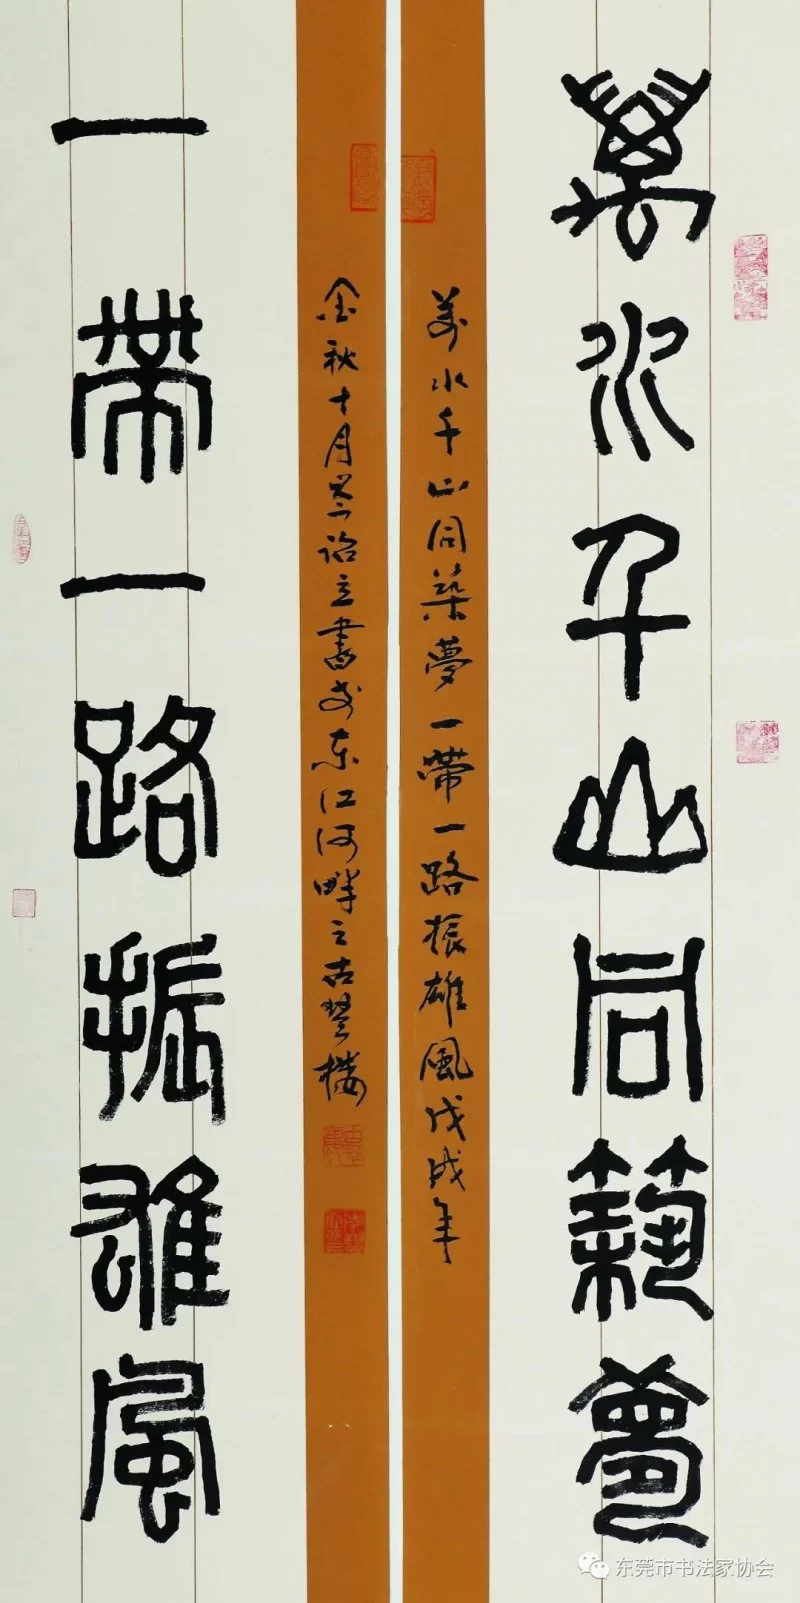 萬水千山同築夢
萬水千山同築夢一帶一路振雄風戊戌年
金秋十月 詒立書於東江河畔之古琴樓
一帶一路振雄風
东莞市书法家协会